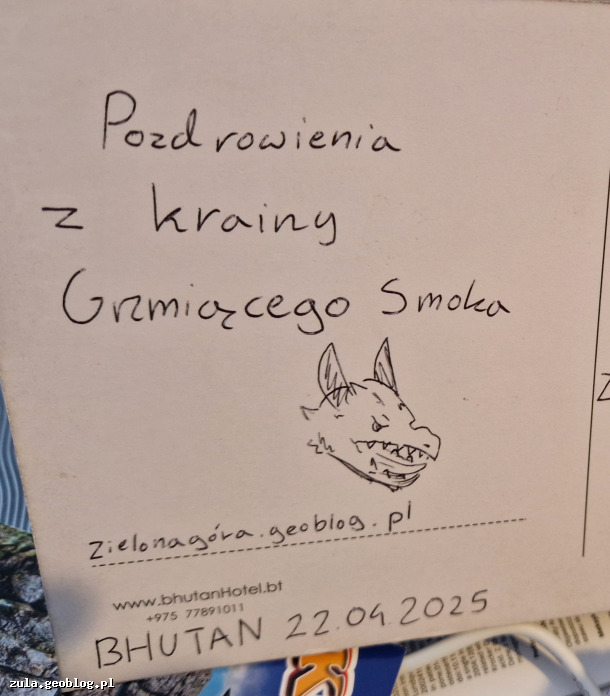 Pozdrowienia
z krainy
Grzmiącego Smoka
zielonagóra.geoblog.pl
www.bhutanHotel.bt
+975 77891011
BHUTAN 22.04.2025
zula.geoblog.pl